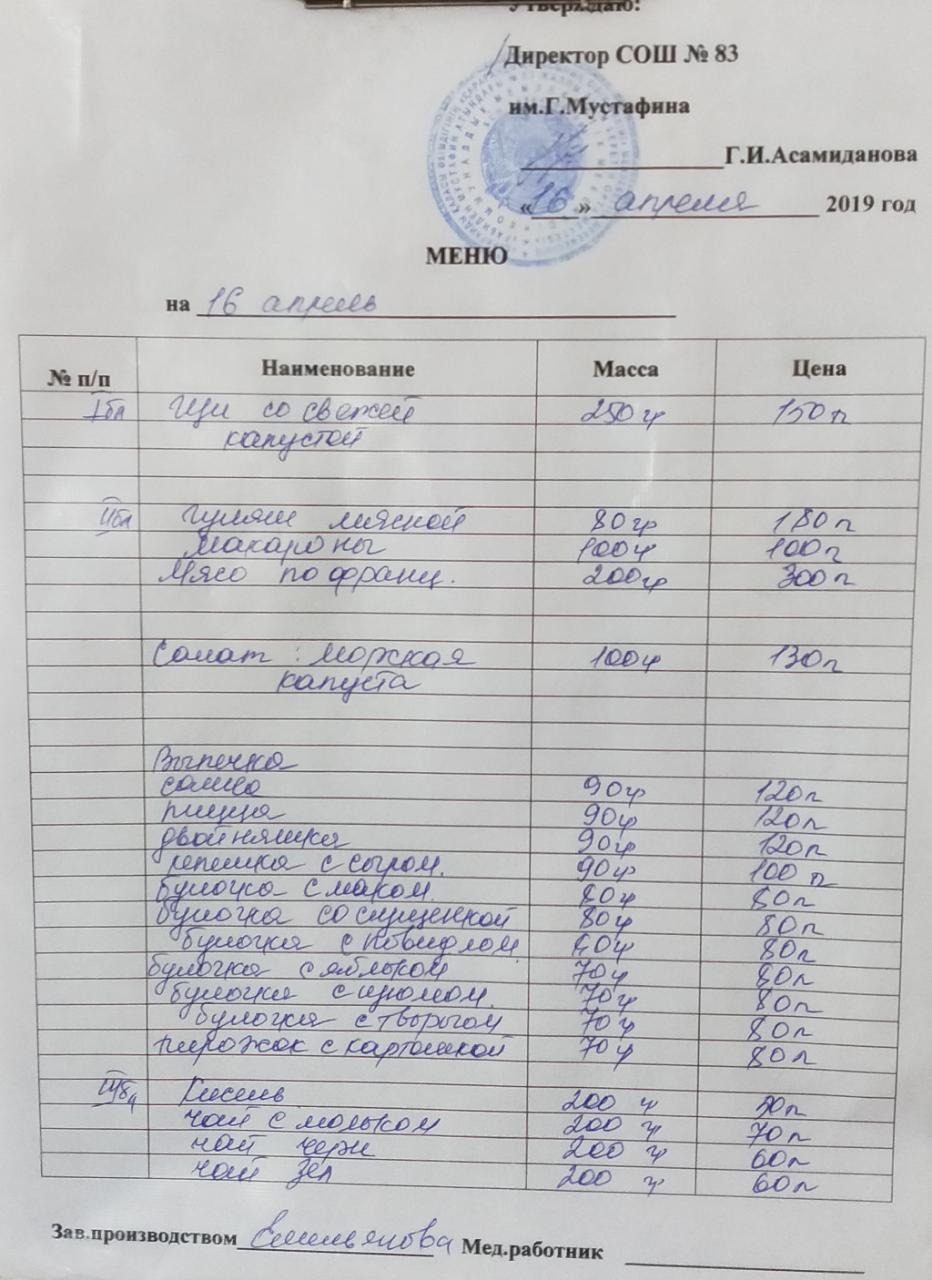 Утверждаю:
Директор СОШ № 83
им.Г.Мустафина
Г.И.Асамиданова
«16» апреля 2019 год
МЕНЮ
на 16 апрель
№ п/п Наименование Масса Цена
I бл Щи со свежей 250 гр 150 п
капустой
II бл Гуляш мясной 80 гр 180 п
Макароны 100 гр 100 п
Мясо по франц. 200 гр 300 п
Салат: морская 100 гр 130 п
капуста
Выпечка
самса 90 гр 120 п
пицца 90 гр 120 п
двойняшка 90 гр 120 п
лепешка с сыром. 90 гр 100 п
булочка с маком. 80 гр 80 п
булочка со сгущенкой 80 гр 80 п
булочка с повидлом. 80 п
булочка с яблоком 70 гр 80 п
булочка с изюмом. 70 гр 80 п
булочка с творогом 70 гр 80 п
пирожок с картошкой 70 гр 80 п
III бл Кисель 200 г
чай с молоком 200 г 70 п
чай черн 200 г 60 п
чай зел 200 г 60 п
Зав.производством Емельянова Мед.работник